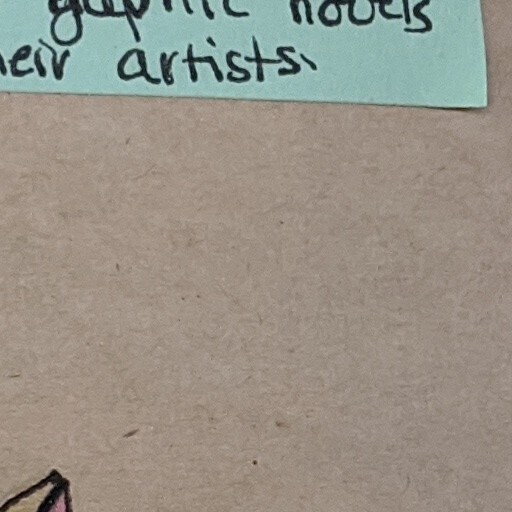 graphic novels
their artists.